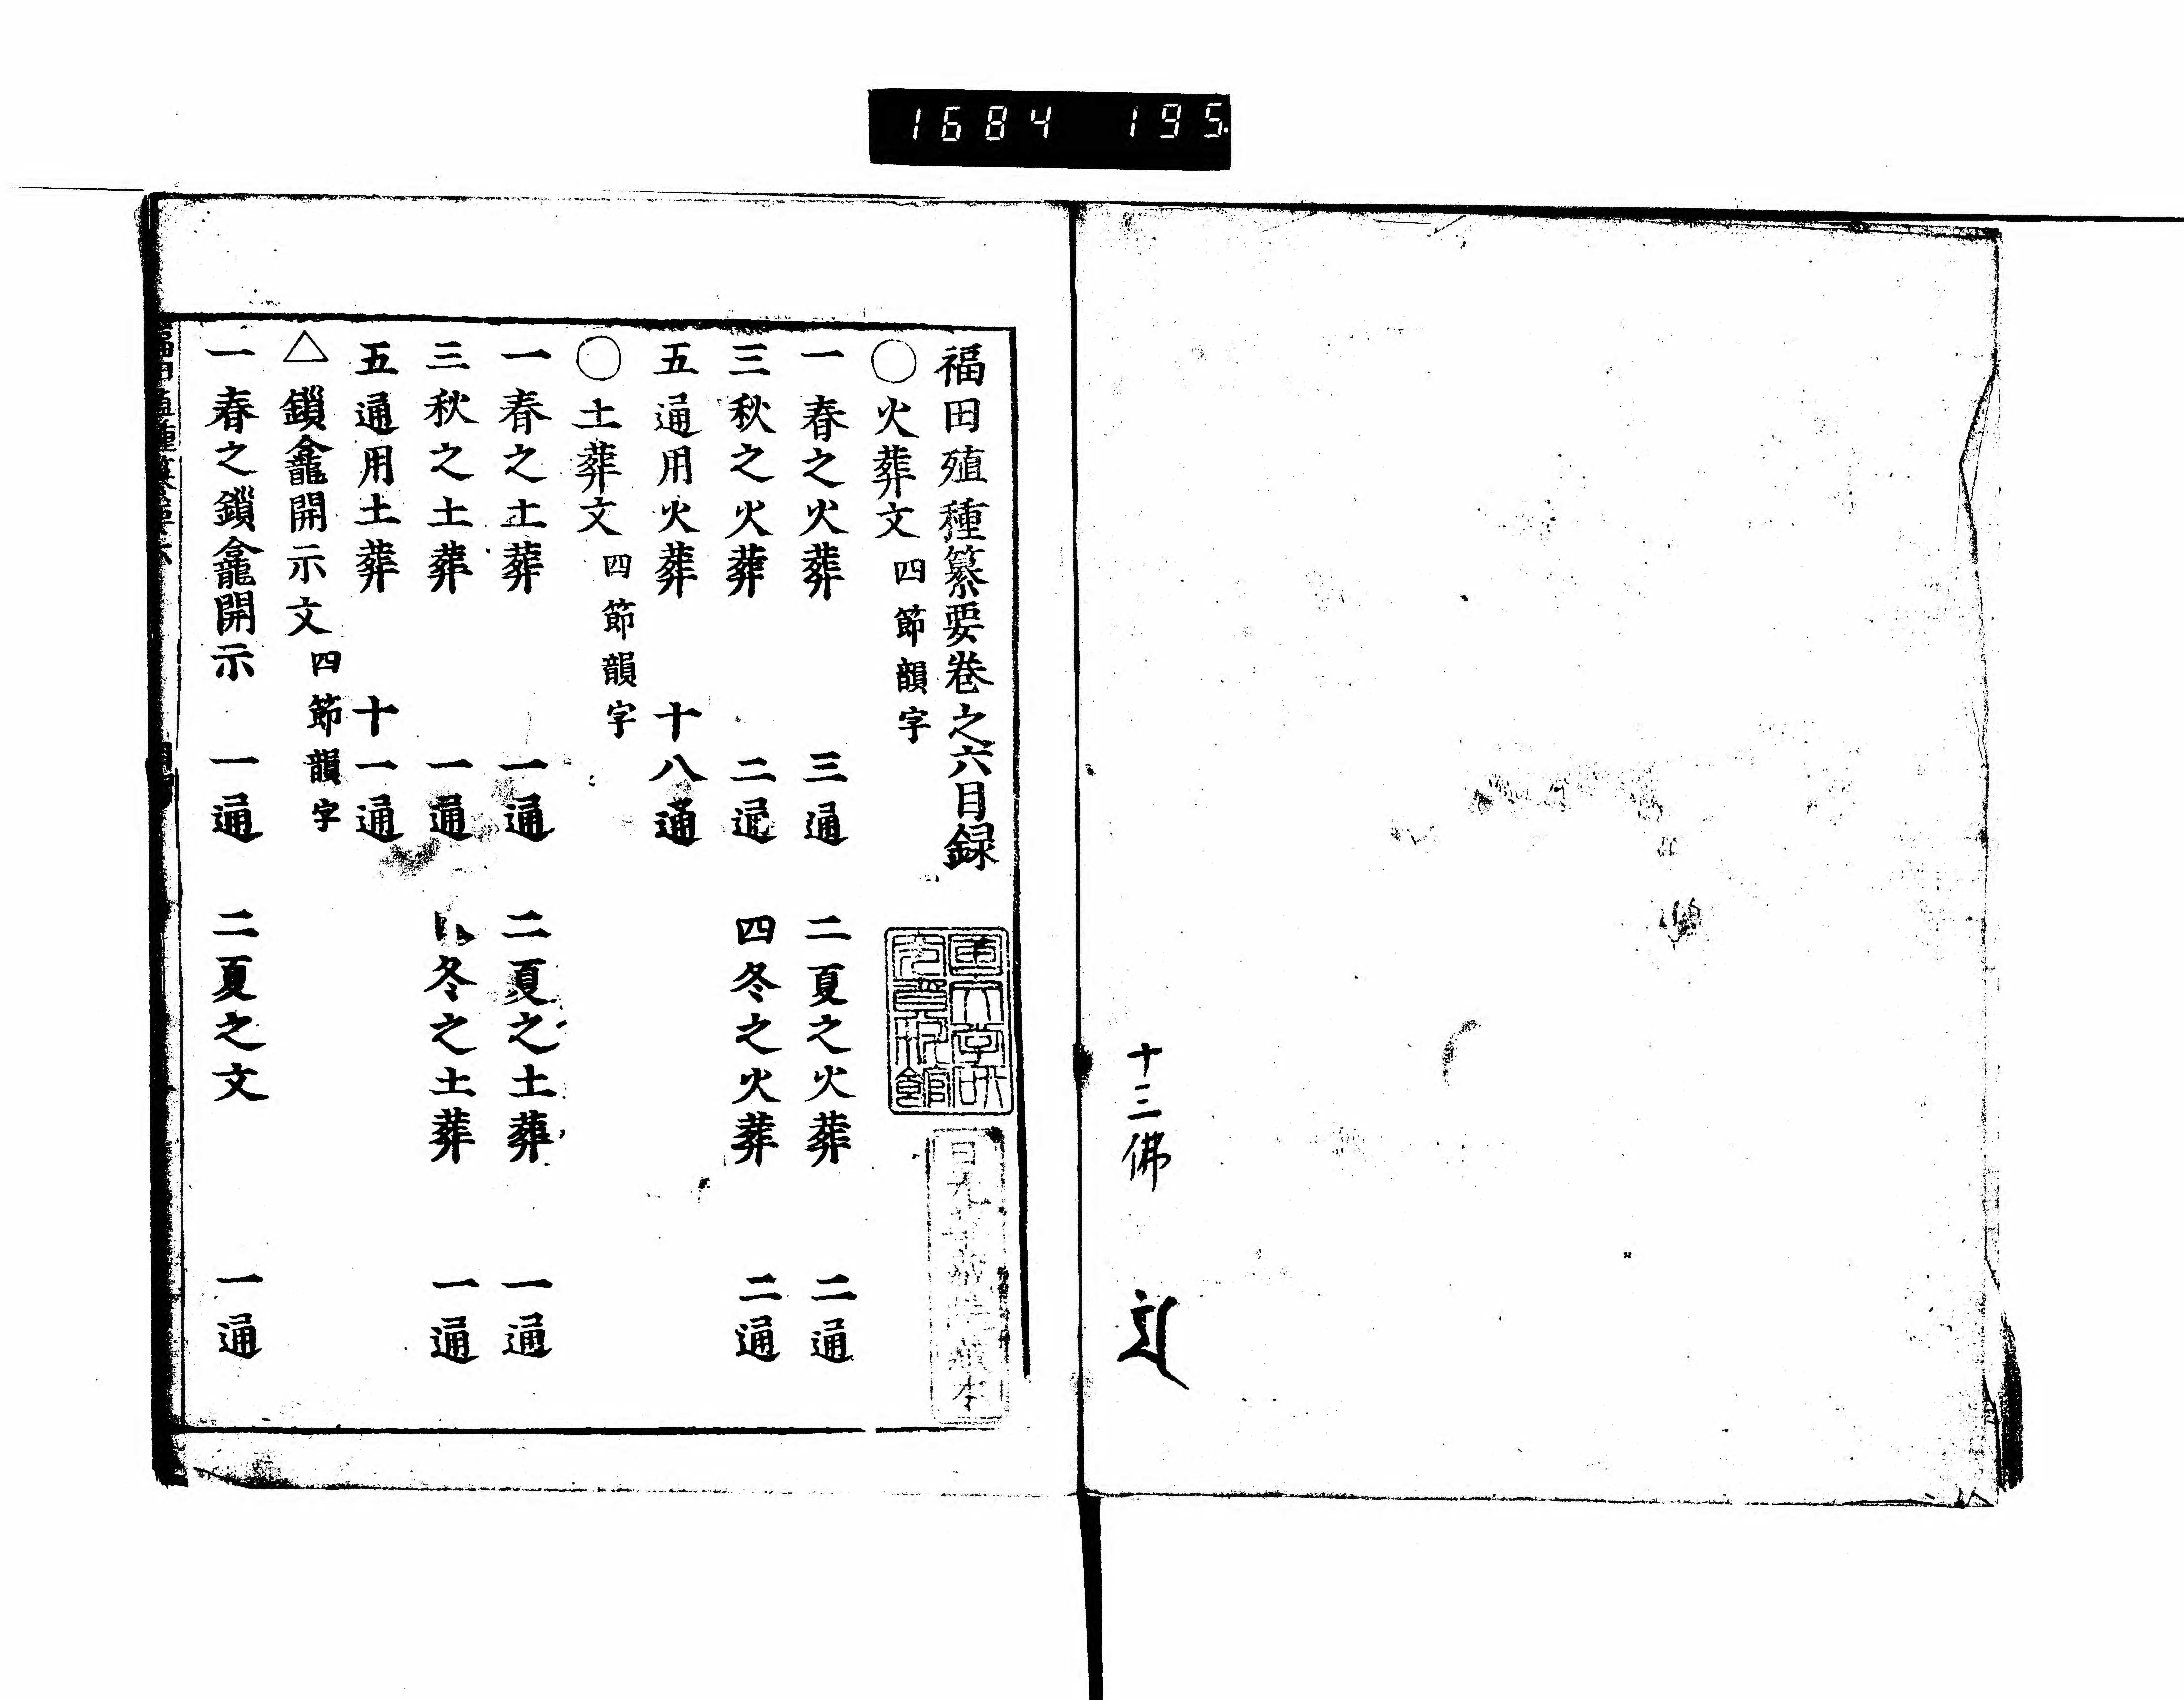 1684 195.
十三佛
福田殖種纂要卷之六目録
○火葬文 四節韻字
一春之火葬 三通 二夏之火葬 二通
三秋之火葬 二通 四冬之火葬 二通
五通用火葬 十八通
○土葬文 四節韻字
一春之土葬 一通 二夏之土葬 一通
三秋之土葬 一通 冬之土葬 一通
五通用土葬 十一通
△鎖龕開示文 四節韻字
一春之鎖龕開示 一通 二夏之文 一通